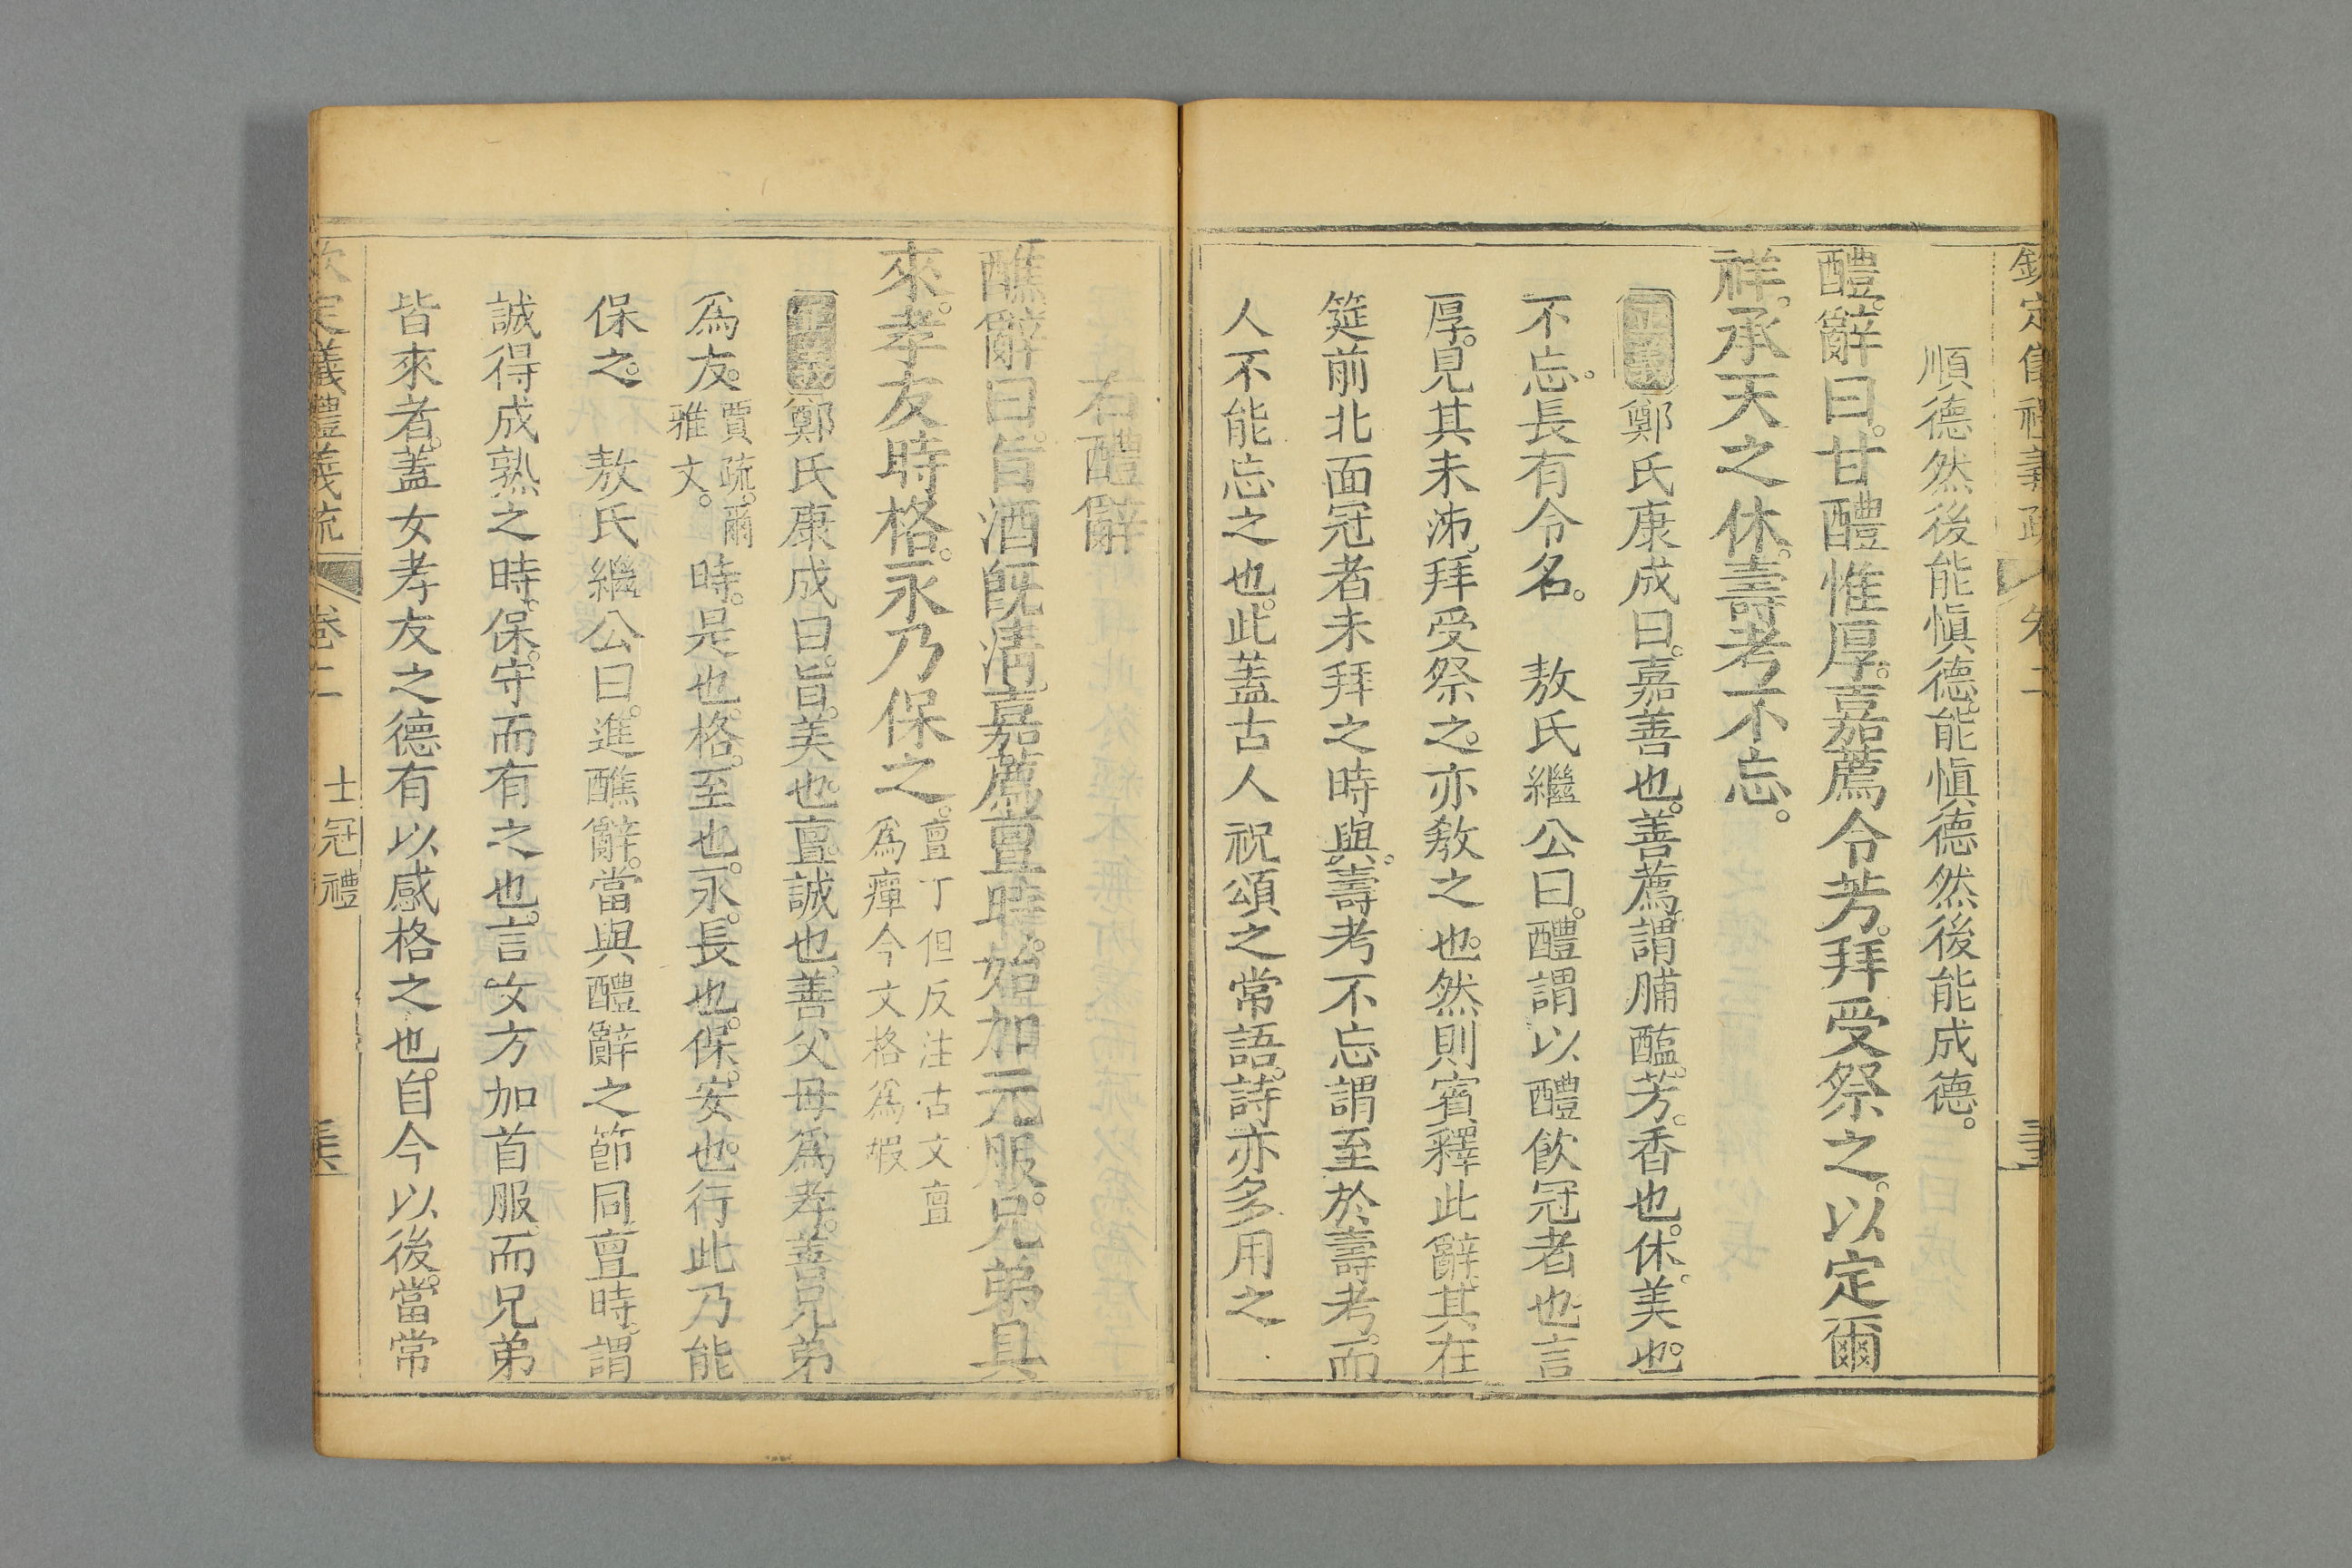 欽定儀禮義疏 卷二
順德然後能愼德。能愼德然後能成德。
醴辭曰。甘醴惟厚。嘉薦令芳。拜受祭之。以定爾
祥。承天之休。壽考不忘。
正義鄭氏康成曰。嘉善也。善薦謂脯醢。芳。香也。休。美也。
不忘。長有令名。 敖氏繼公曰。醴謂以醴飲冠者也言
厚。見其未沛。拜受祭之。亦敎之也。然則賓釋此辭。其在
筵前北面冠者未拜之時與。壽考不忘謂至於壽考。而
人不能忘之也。此蓋古人祝頌之常語。詩亦多用之
右醴辭
醮辭曰。旨酒旣淸。嘉薦亶時。始加元服。兄弟具
來。孝友時格。永乃保之。亶丁但反注古文亶
爲癉今文格爲嘏
正義鄭氏康成曰。旨。美也。亶。誠也。善父母爲孝。善兄弟
爲友。賈疏。爾
雅文。時。是也。格。至也。永。長也。保。安也。行此乃能
保之。 敖氏繼公曰。進醮辭。當與醴辭之節同亶時。謂
誠得成熟之時。保。守而有之也。言女方加首服。而兄弟
皆來者。蓋女孝友之德有以感格之也。自今以後。當常
欽定儀禮義疏 卷二 士冠禮